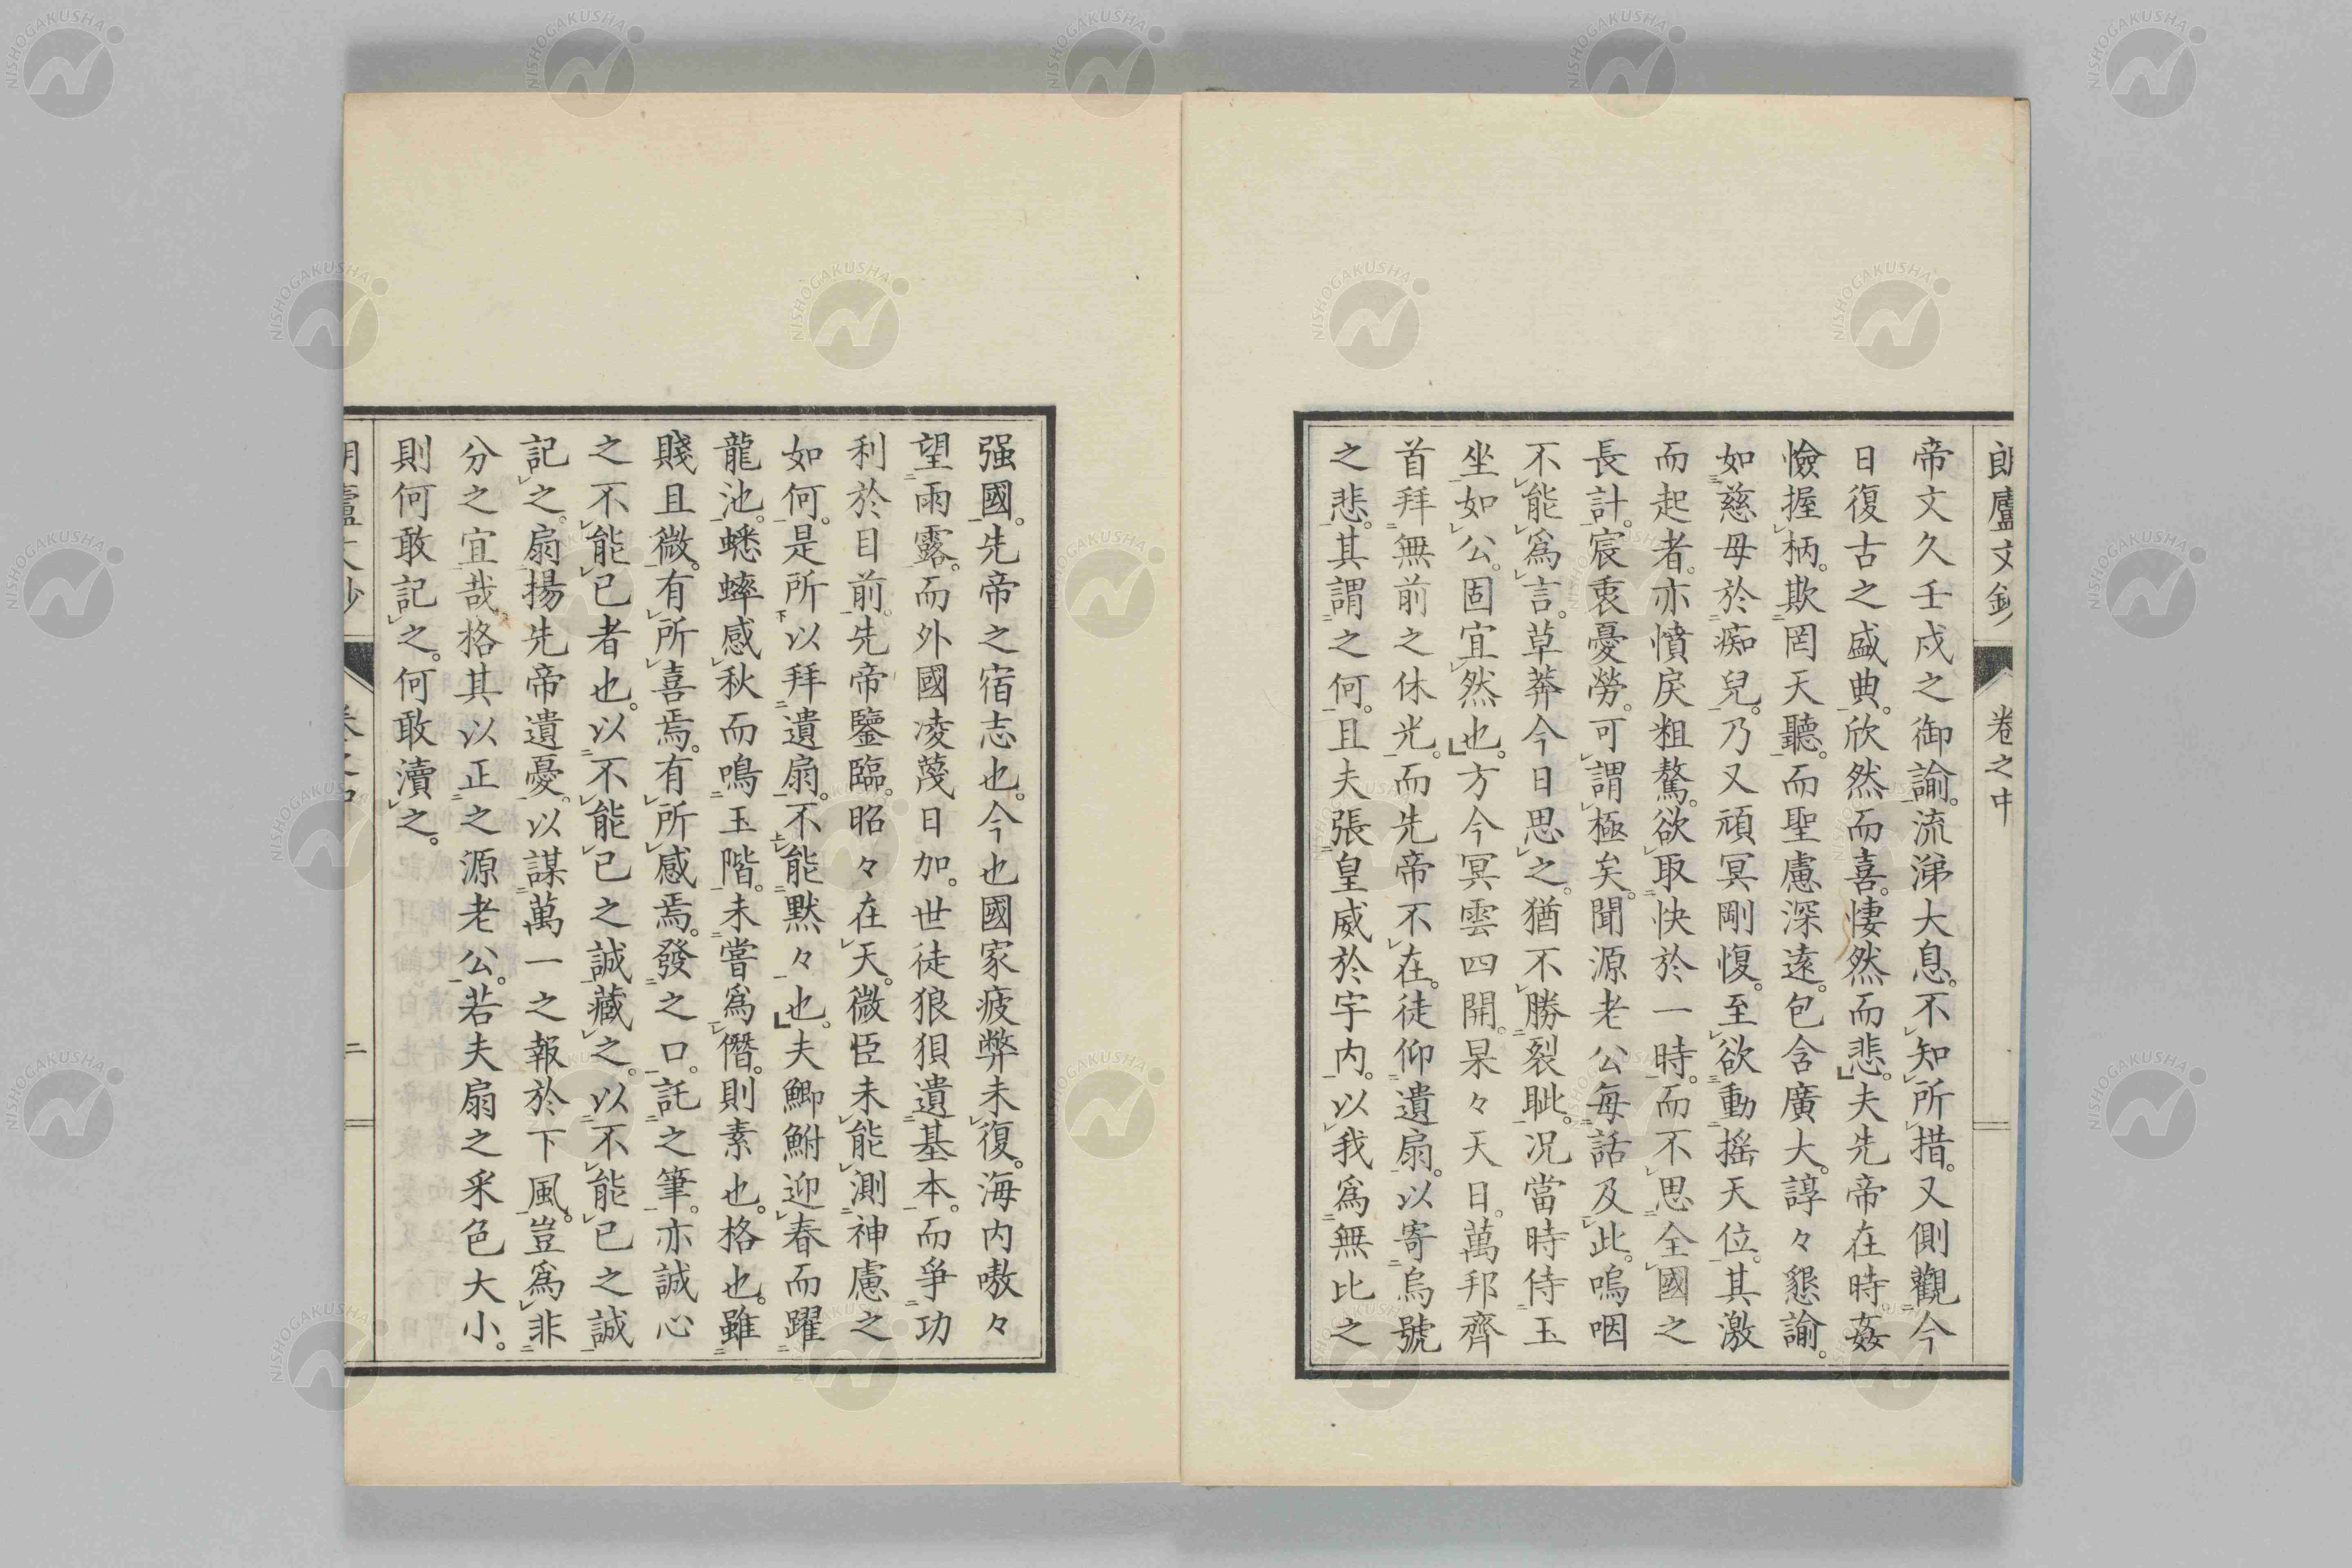 朗廬文鈔 卷之中
帝文久壬戌之御諭。流涕大息。不知所措。又側觀今
日復古之盛典。欣然而喜。悽然而悲。夫先帝在時姦
憸握柄。欺罔天聽。而聖慮深遠。包含廣大。諄々懇諭。
如慈母於痴兒。乃又頑冥剛愎。至欲動搖天位。其激
而起者。亦憤戾粗驁。欲取快於一時。而不思全國之
長計。宸衷憂勞。可謂極矣。聞源老公每話及此。嗚咽
不能爲言。草莽今日思之。猶不勝裂眦。况當時侍玉
坐如公。固宜然也。方今冥雲四開。杲々天日。萬邦齊
首拜無前之休光。而先帝不在。徒仰遺扇。以寄烏號
之悲。其謂之何。且夫張皇威於宇内。以我爲無比之
强國。先帝之宿志也。今也國家疲弊未復。海内嗷々
望雨露。而外國凌蔑日加。世徒狼狽遺基本。而爭功
利於目前。先帝鑒臨。昭々在天。微臣未能測神慮之
如何。是所以拜遺扇。不能默々也。夫鯽鮒迎春而躍
龍池。蟋蟀感秋而鳴玉階。未嘗爲僭。則素也。格也。雖
賤且微。有所喜焉。有所感焉。發之口。託之筆。亦誠心
之不能已者也。以不能已之誠藏之。以不能已之誠
記之。扇揚先帝遺憂。以謀萬一之報於下風。豈爲非
分之宜哉。格其以正之源老公。若夫扇之釆色大小。
則何敢記之。何敢瀆之。